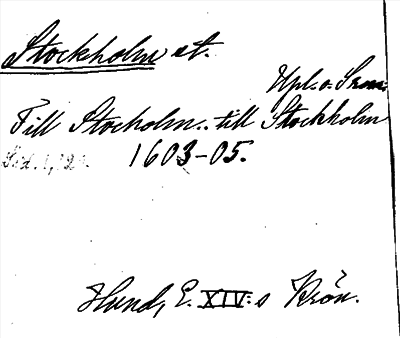 Stockholm st.
Upl. o. Srm.
Till Stocholm.. till Stockholm
1603-05.
Hund, E. XIV:s Krön.